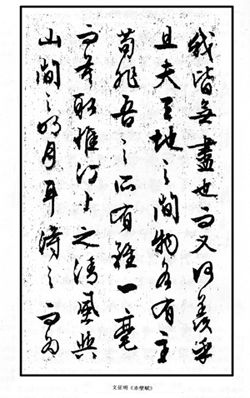 我皆無盡也而又何羨乎
且夫天地之間物各有主
苟非吾之所有雖一毫
而莫取惟江上之清風與
山間之明月耳得之而為
文征明《赤壁赋》